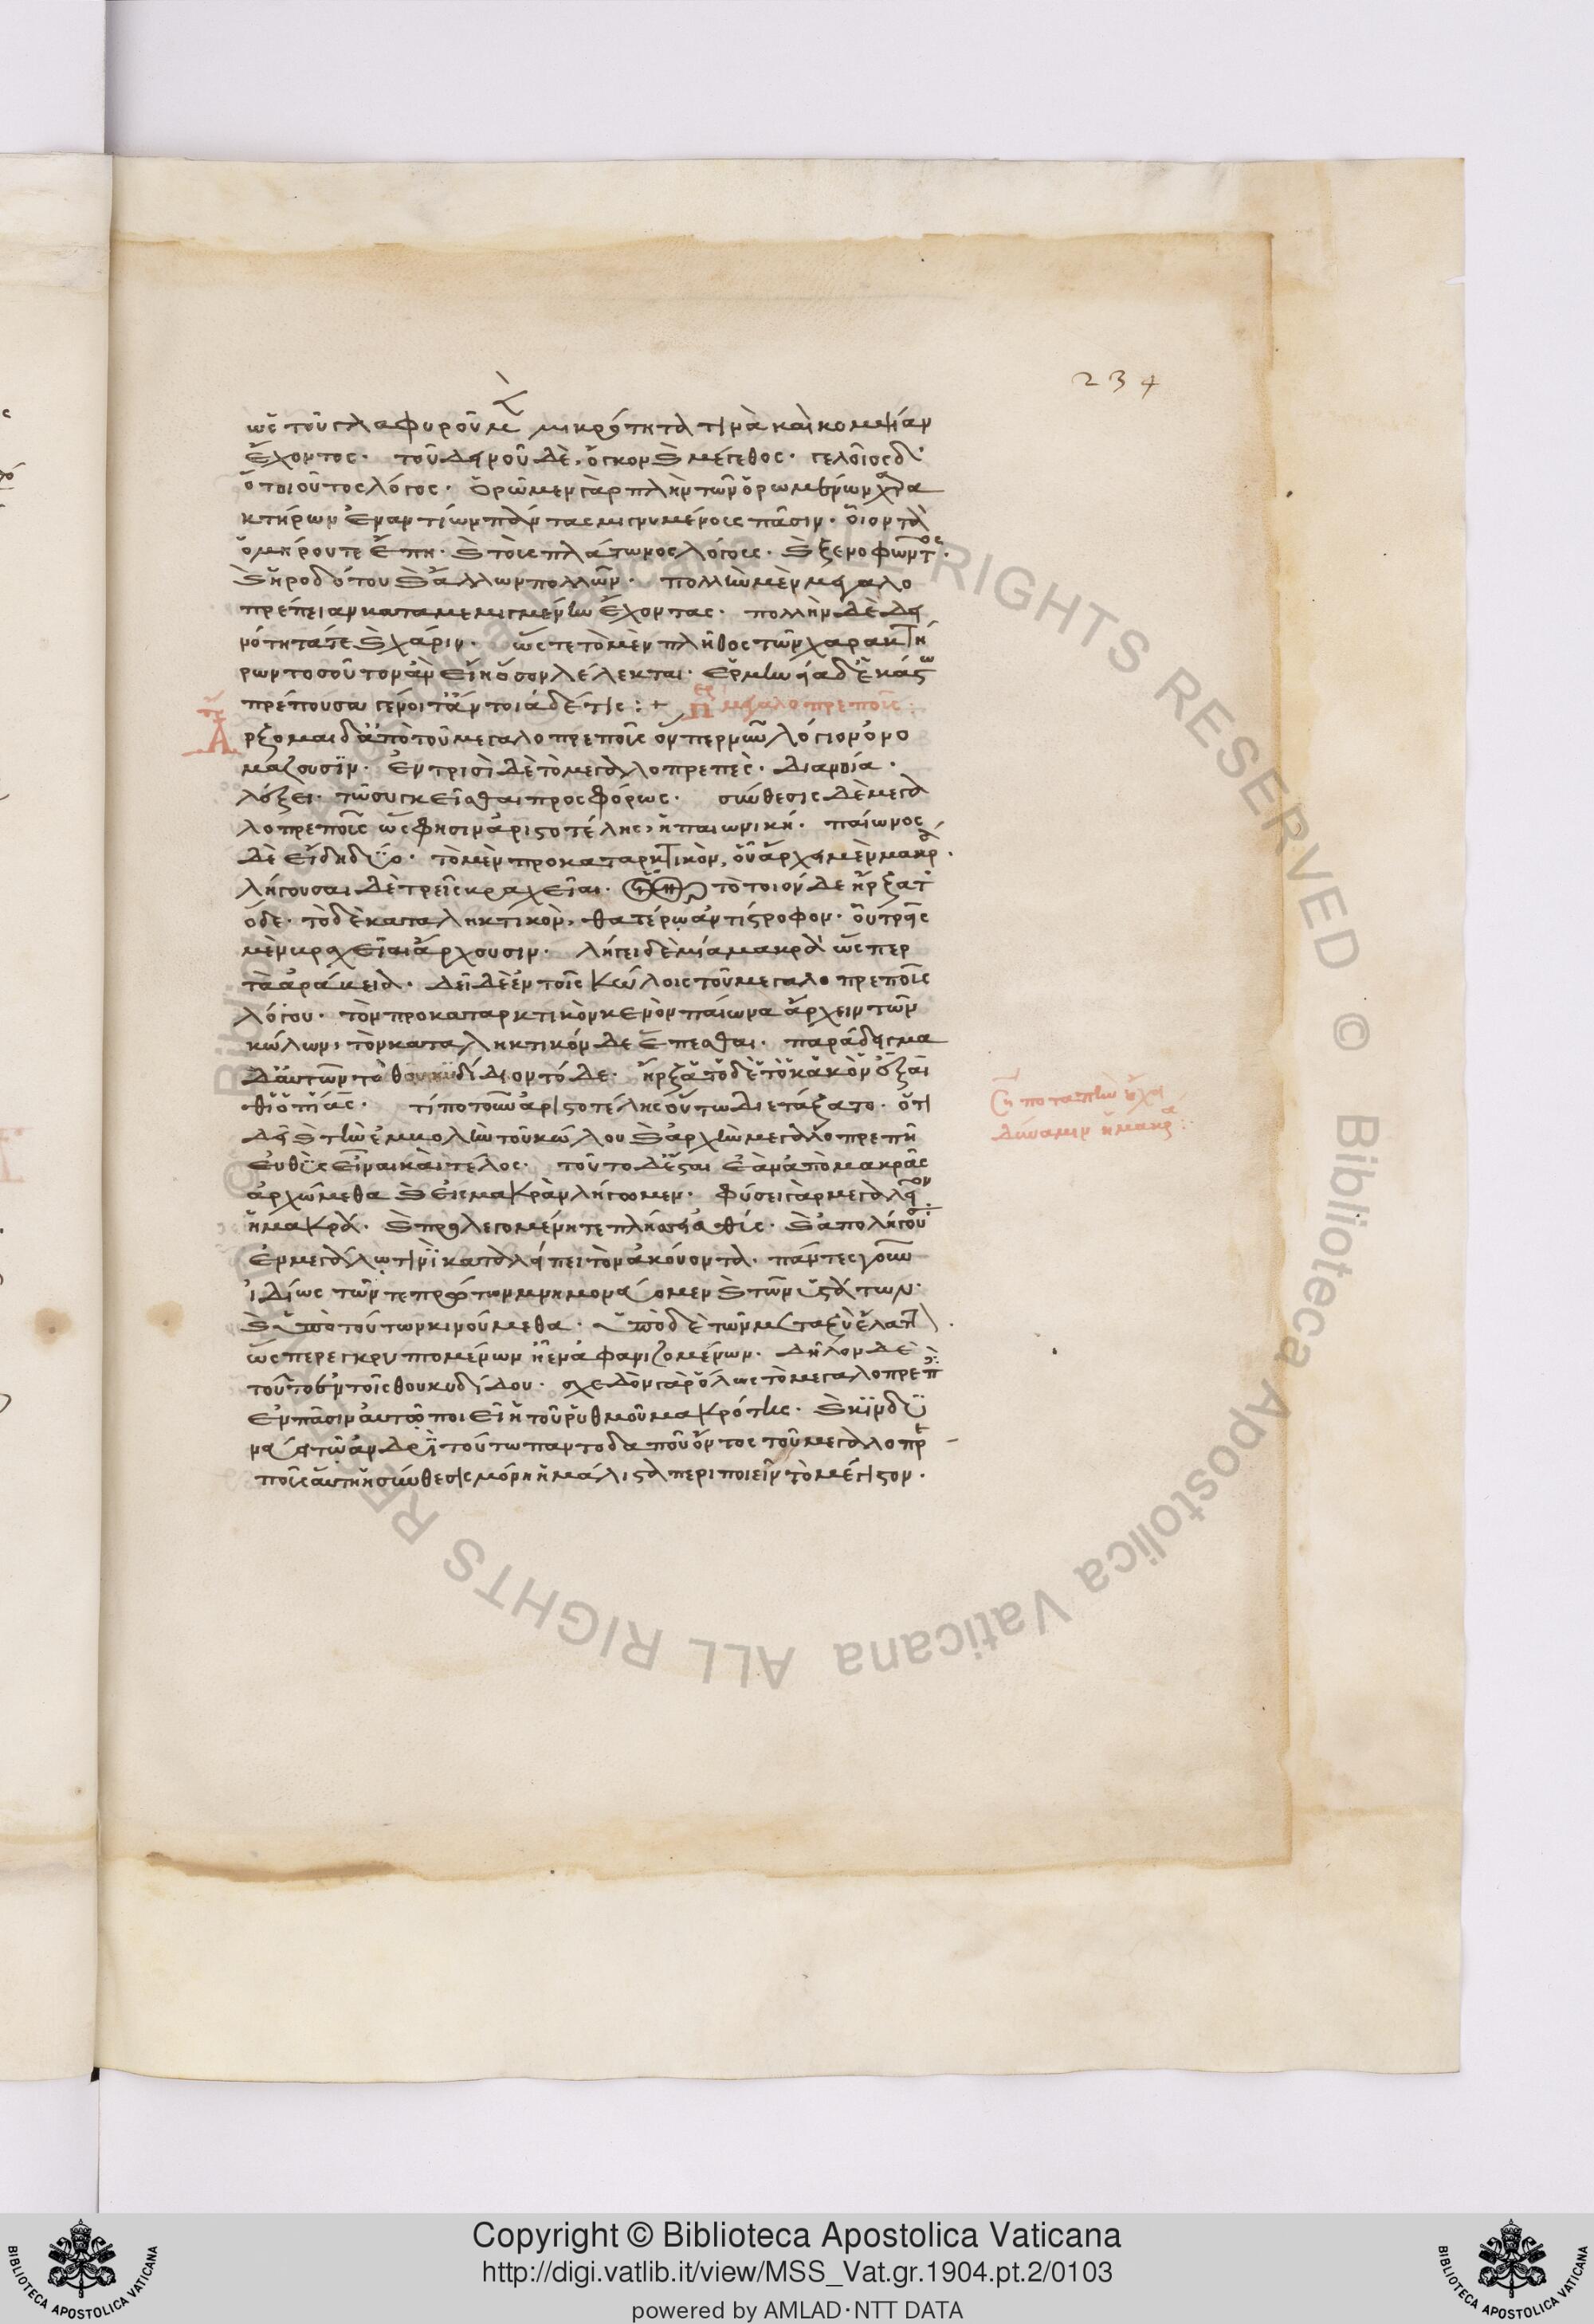 234
ὡς τοῦ γλαφυροῦ μὲν μικρότητά τινα καὶ κομψείαν
ἔχοντος· τοῦ δεινοῦ δὲ, ὄγκον καὶ μέγεθος· γελοῖος δ'
ὁ τοιοῦτος λόγος· ὁρῶμεν γὰρ πλὴν τῶν ὁρωμένων χαρα
κτήρων ἐναντίων πάντας μιγνυμένους πᾶσιν· οἷον τὰ
ὁμήρου τε ἔπη· καὶ τοὺς πλάτωνος λόγους· καὶ ξενοφῶντος·
καὶ ἡροδότου καὶ ἄλλων πολλῶν· πολλὴν μὲν μεγαλο
πρέπειαν καταμεμιγμένην ἔχοντας· πολλὴν δὲ δει
νότητά τε καὶ χάριν· ὥστε τὸ μὲν πλῆθος τῶν χαρακτή
ρων τοσοῦτον ἂν εἴη ὅσον λέλεκται· ἑρμηνεία δ' ἑκάστῳ
πρέπουσα γένοιτ' ἂν τοιάδε τίς :+ περὶ μεγαλοπρεποῦς :
Ἄρξομαι δ' ἀπὸ τοῦ μεγαλοπρεποῦς ὅνπερ νῦν λόγιον ὀνο
μάζουσιν· ἐν τρισὶ δὲ τὸ μεγαλοπρεπές· διανοία·
λέξει· τῶ συγκεῖσθαι προσφόρως· σύνθεσις δὲ μεγα
λοπρεπὴς ὥς φησιν ἀριστοτέλης, ἡ παιωνική· παίωνος
δὲ εἴδη δύο· τὸ μὲν προκαταρκτικὸν, οὗ ἄρχει μὲν μακρά·
λήγουσι δὲ τρεῖς βραχεῖαι· τὸ τοιόνδε ἤρξατο
δέ· τὸ δὲ καταληκτικὸν, θατέρῳ ἀντίστροφον· οὗ τρεῖς
μὲν βραχεῖαι ἄρχουσιν· λήγει δὲ μία μακρὰ ὥσπερ
τὸ ἀράβεια· δεῖ δὲ ἐν τοῖς κώλοις τοῦ μεγαλοπρεποῦς
λόγου· τὸν προκαταρκτικὸν μὲν ὂν παίωνα ἄρχειν τῶν
κώλων, τὸν καταληκτικὸν δὲ ἕπεσθαι· παράδειγμα
δ' αὐτῶν τὸ θουκυδίδιον τόδε· ἤρξατο δὲ τὸ κακὸν ἐξ αἰ
θιοπίας· τί ποτ' οὖν ἀριστοτέλης οὕτω διετάξατο· ὅτι
δεῖ καὶ τὴν ἐμβολὴν τοῦ κώλου καὶ ἀρχὴν μεγαλοπρεπῆ
εὐθὺς εἶναι καὶ τέλος· τοῦτο δ' ἔσται ἐὰν ἀπὸ μακρᾶς
ἀρχώμεθα καὶ εἰς μακρὰν λήγωμεν· φύσει γὰρ μεγαλεῖον
ἡ μακρά· καὶ προλεγομένη τε πλήσσει εὐθύς· καὶ ἀπολήγου
ἐν μεγάλῳ τινὶ καταλείπει τὸν ἀκούοντα. πάντες γοῦν
ἰδίως τῶν τε πρώτων μνημονεύομεν καὶ τῶν ὑστάτων·
καὶ ὑπὸ τούτων κινούμεθα· ὑπὸ δὲ τῶν μεταξὺ ἔλαττον
ὥσπερ ἐγκρυπτομένων ἢ ἐναφανιζομένων· δῆλον δὲ
τοῦτο ἐν τοῖς θουκυδίδου· σχεδὸν γὰρ ὅλως τὸ μεγαλοπρεπὲς
ἐν πᾶσιν αὐτῷ ποιεῖ ἡ τοῦ ῥυθμοῦ μακρότης· καὶ κινδυ
νεύει τῷ ἀνδρὶ τούτῳ παντοδαποῦ ὄντος τοῦ μεγαλοπρε
ποῦς αὕτη ἡ σύνθεσις μόνη ἢ μάλιστα περιποιεῖν τὸ μέγιστον.
δύναμιν ἡ μακρὰ :